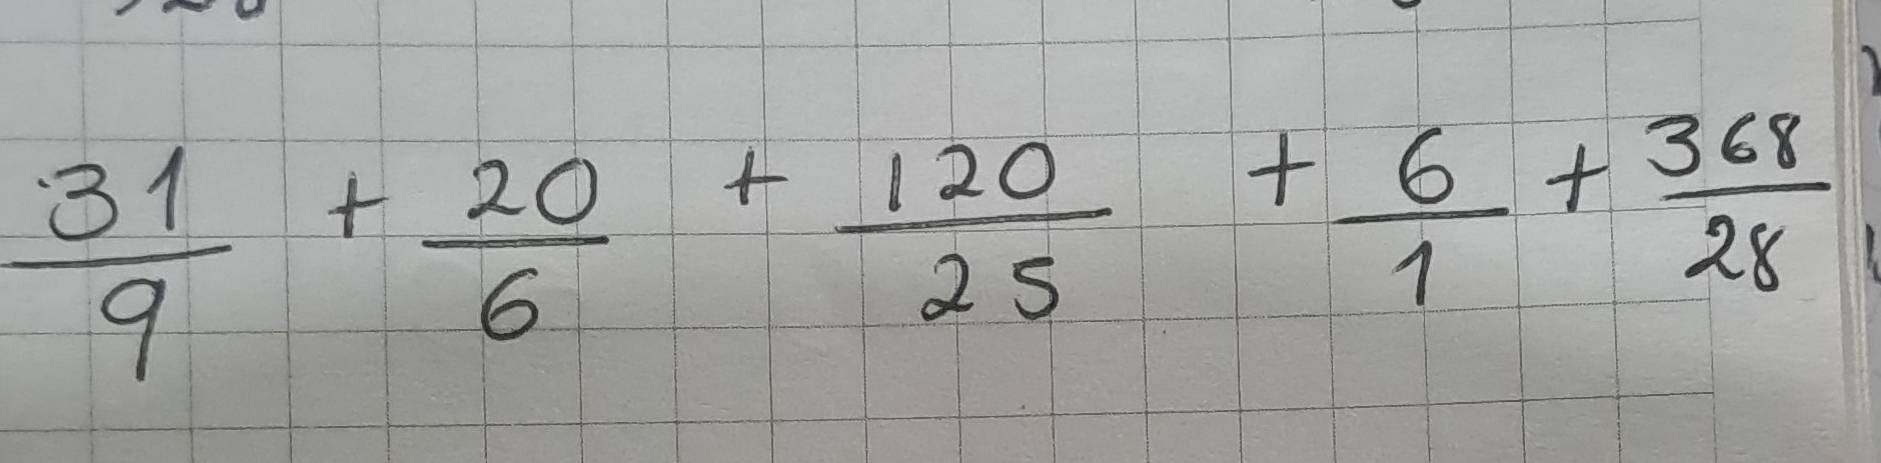 31/9 + 20/6 + 120/25 + 6/1 + 368/28